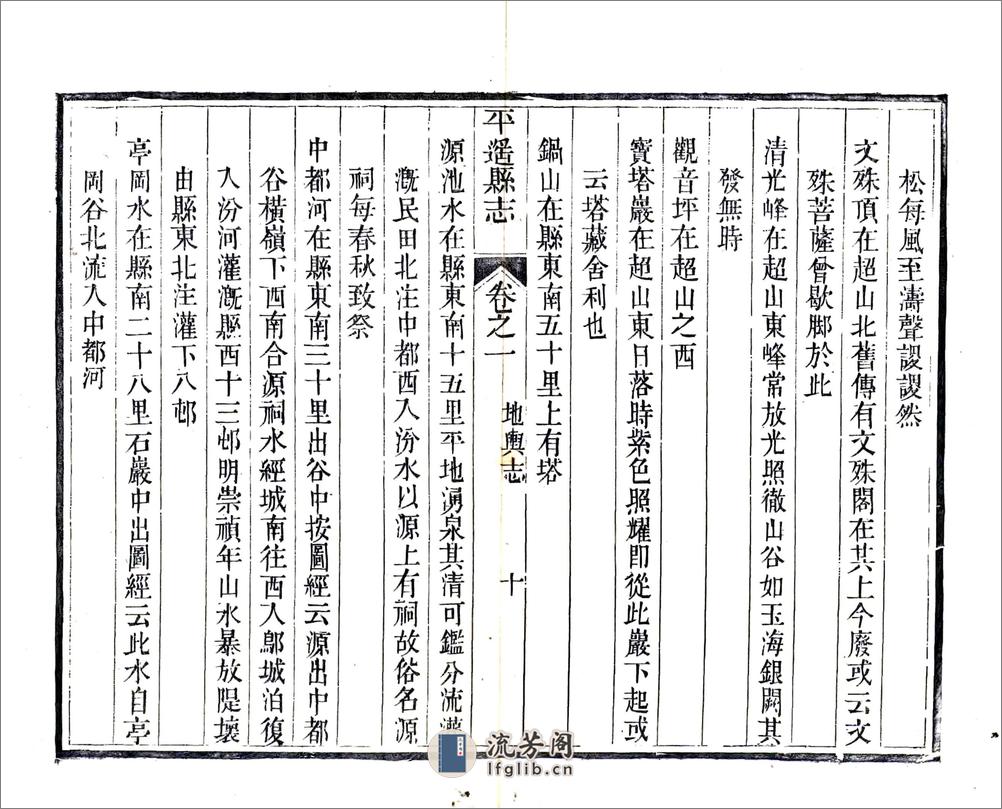 松每風至濤聲謖謖然
文殊頂在超山北舊傳有文殊閣在其上今廢或云文
殊菩薩曾歇脚於此
清光峰在超山東峰常放光照徹山谷如玉海銀闕其
發無時
觀音坪在超山之西
寶塔巖在超山東日落時紫色照耀即從此巖下起或
云塔藏舍利也
鍋山在縣東南五十里上有塔
平遥縣志
卷之一
地輿志
十
源池水在縣東南十五里平地湧泉其清可鑑分流灌
漑民田北注中都西入汾水以源上有祠故俗名源
祠每春秋致祭
中都河在縣東南三十里出谷中按圖經云源出中都
谷橫嶺下西南合源祠水經城南往西入鄔城泊復
入汾河灌漑縣西十三邨明崇禎年山水暴放隄壞
由縣東北注灌下八邨
亭岡水在縣南二十八里石巖中出圖經云此水自亭
岡谷北流入中都河
流芳阁
lfglib.cn